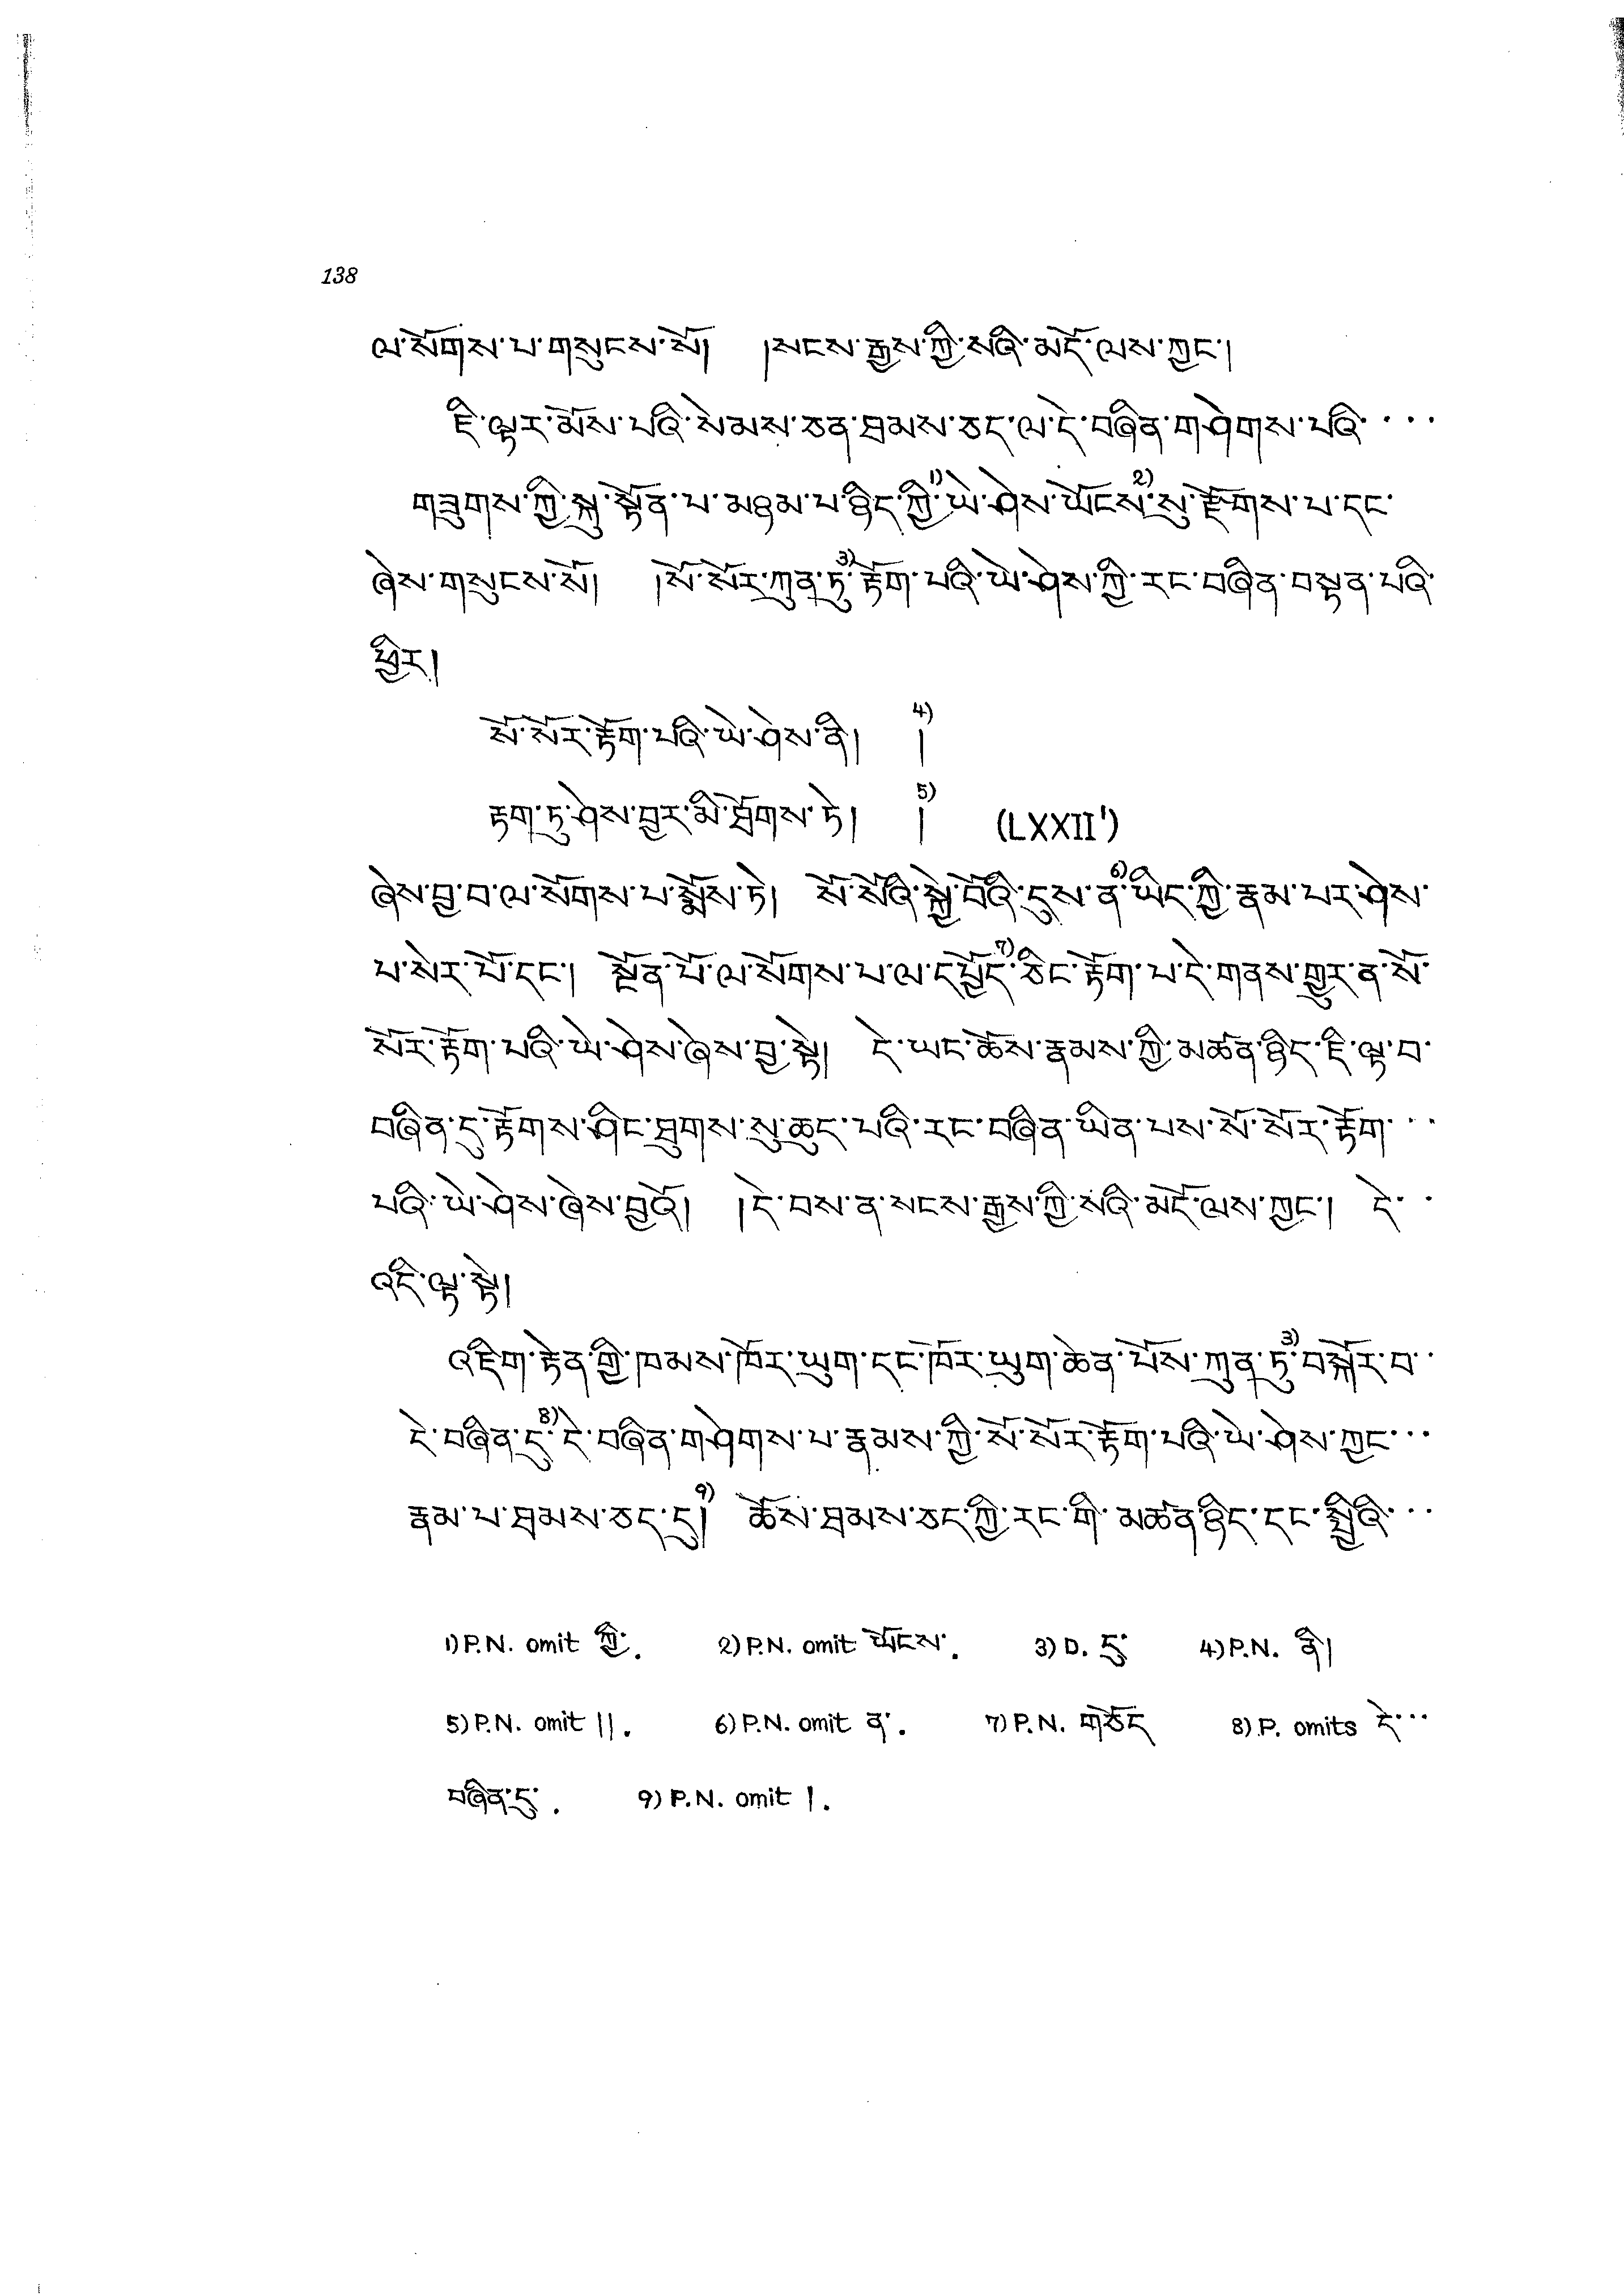 138
ལ་སོགས་པ་གསུངས་སོ།  །སངས་རྒྱས་ཀྱི་སའི་མདོ་ལས་ཀྱང་།
ཇི་ལྟར་མོས་པའི་སེམས་ཅན་ཐམས་ཅད་ལ་དེ་བཞིན་གཤེགས་པའི་···
གཟུགས་ཀྱི་སྐུ་སྟོན་པ་མཉམ་པ་ཉིད་ཀྱི་1)ཡེ་ཤེས་ཡོངས་2)སུ་རྫོགས་པ་དང་
ཞེས་གསུངས་སོ།  །སོ་སོར་ཀུན་ཏུ་3)རྟོག་པའི་ཡེ་ཤེས་ཀྱི་རང་བཞིན་བསྟན་པའི་
ཕྱིར།
སོ་སོར་རྟོག་པའི་ཡེ་ཤེས་ནི།  །4)
རྟག་ཏུ་ཤེས་བྱར་མི་ཐོགས་ཏེ།  །5)  (LXXII')
ཞེས་བྱ་བ་ལ་སོགས་པ་སྨོས་ཏེ།  སོ་སོའི་སྐྱེ་བོའི་དུས་ན་6)ཡིད་ཀྱི་རྣམ་པར་ཤེས་
པ་སེར་པོ་དང་།  སྔོན་པོ་ལ་སོགས་པ་ལ་དཔྱོད་7)ཅིང་རྟོག་པ་དེ་གནས་གྱུར་ན་སོ་
སོར་རྟོག་པའི་ཡེ་ཤེས་ཞེས་བྱ་སྟེ།  དེ་ཡང་ཆོས་རྣམས་ཀྱི་མཚན་ཉིད་ཇི་ལྟ་བ་
བཞིན་དུ་རྟོགས་ཤིང་ཐུགས་སུ་ཆུད་པའི་རང་བཞིན་ཡིན་པས་སོ་སོར་རྟོག་···
པའི་ཡེ་ཤེས་ཞེས་བྱའོ།  །དེ་བས་ན་སངས་རྒྱས་ཀྱི་སའི་མདོ་ལས་ཀྱང་།  དེ་··
འདི་ལྟ་སྟེ།
འཇིག་རྟེན་གྱི་ཁམས་ཁོར་ཡུག་དང་ཁོར་ཡུག་ཆེན་པོས་ཀུན་ཏུ་3)བསྐོར་བ་··
དེ་བཞིན་དུ་8)དེ་བཞིན་གཤེགས་པ་རྣམས་ཀྱི་སོ་སོར་རྟོག་པའི་ཡེ་ཤེས་ཀྱང་···
རྣམ་པ་ཐམས་ཅད་དུ།9)  ཆོས་ཐམས་ཅད་ཀྱི་རང་གི་མཚན་ཉིད་དང་སྤྱིའི་···
1) P.N. omit ཀྱི་.  2) P.N. omit ཡོངས་.  3) D. དུ་  4) P.N. ནི།
5) P.N. omit ||.  6) P.N. omit ན་.  7) P.N. གཅོད  8) P. omits དེ་···
བཞིན་དུ་.  9) P.N. omit |.